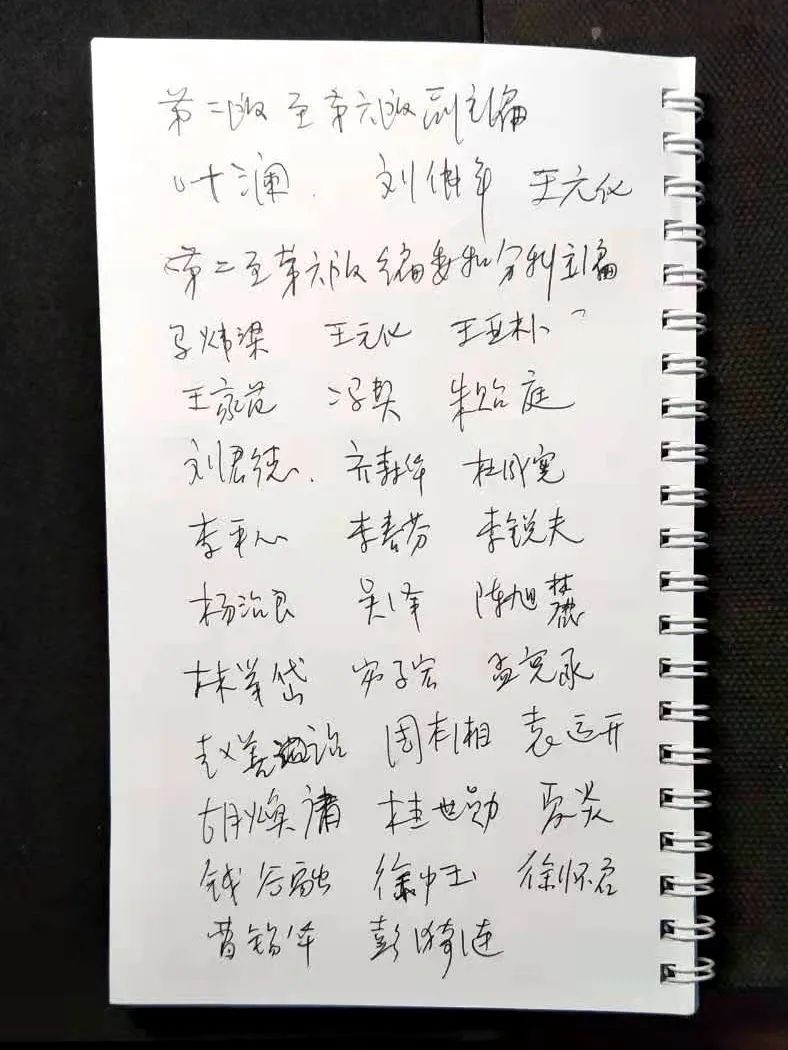 第二版至第六版副主编
叶澜. 刘佛年 王元化
第二至第六版编委和分科主编
马炜梁 王元化 王亚朴
王家范 冯契 朱贻庭
刘君德. 齐森华 杜成宪
李平心 李春芬 李锐夫
杨治良 吴泽 陈旭麓
林举岱 宓子宏 孟宪承
赵善诒 周本湘 袁运开
胡焕庸 桂世勋 夏炎
钱谷融 徐中玉 徐怀启
曹锡华 彭漪涟